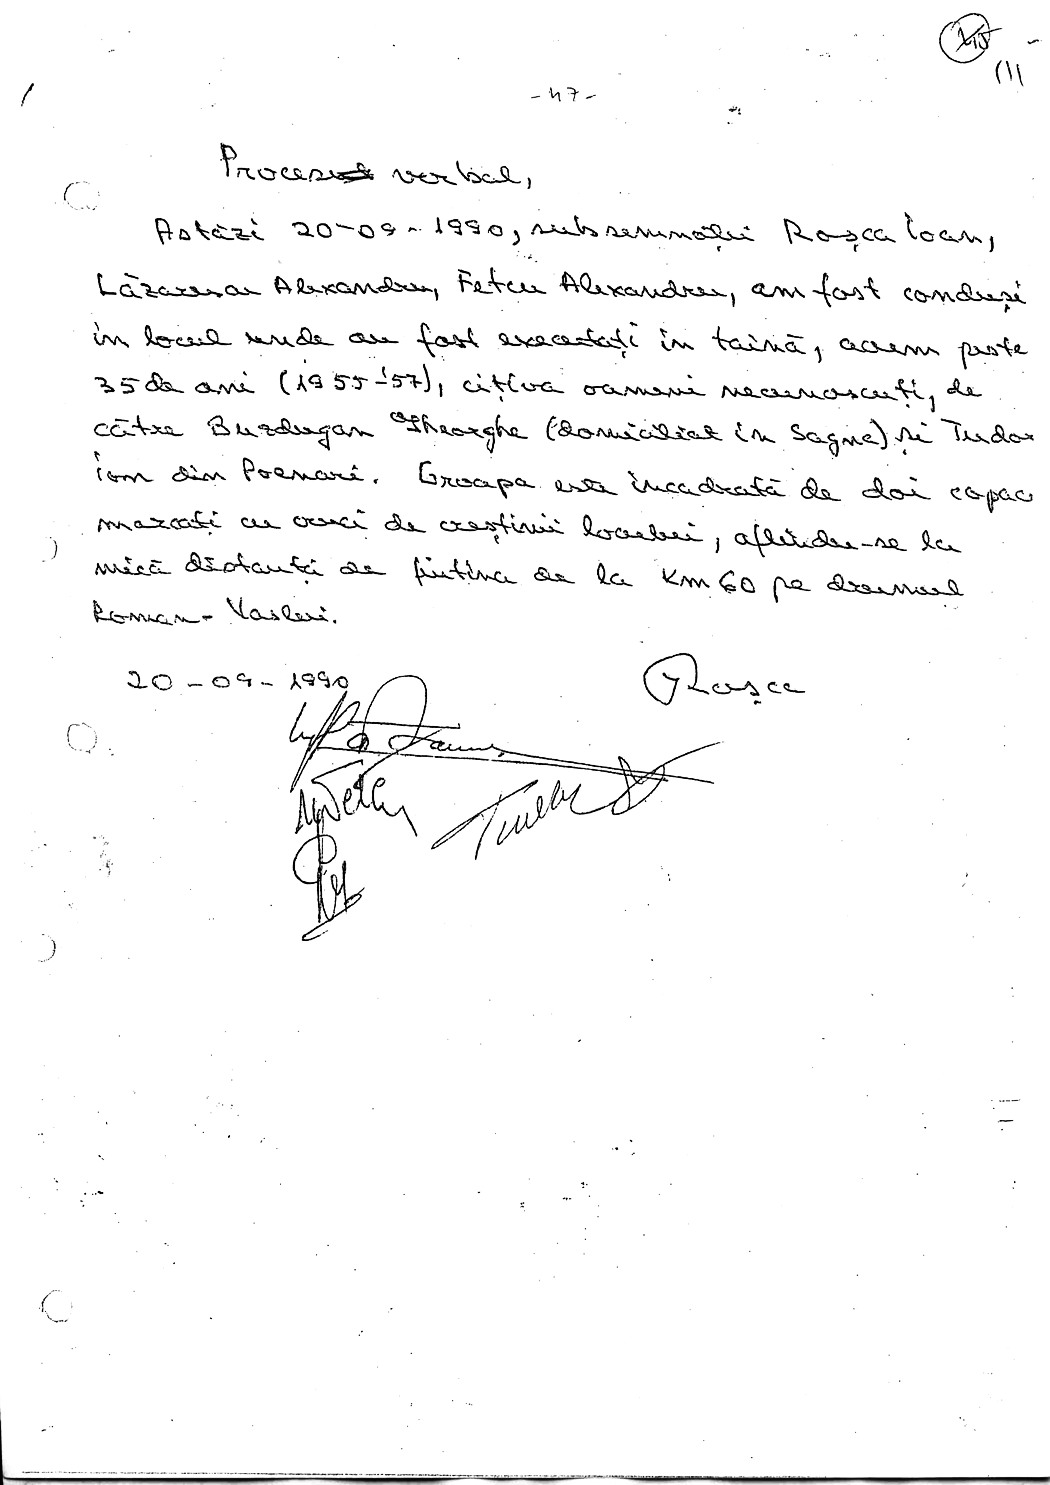 111
-47-
Proces verbal,
Astăzi 20-09-1990, subsemnații Roșca Ioan,
Lăzarescu Alexandru, Fetcu Alexandru, am fost conduși
în locul unde au fost executați în taină, acum peste
35 de ani (1955-'57), cîțiva oameni necunoscuți, de
către Buzdugan Gheorghe (domiciliat în Sagna) și Tudor
Ion din Poenari. Groapa este încadrată de doi copaci
marcați cu cruci de creștinii locului, aflîndu-se la
mică distanță de fîntîna de la Km 60 pe drumul
Roman-Vaslui.
20-09-1990
Roșca